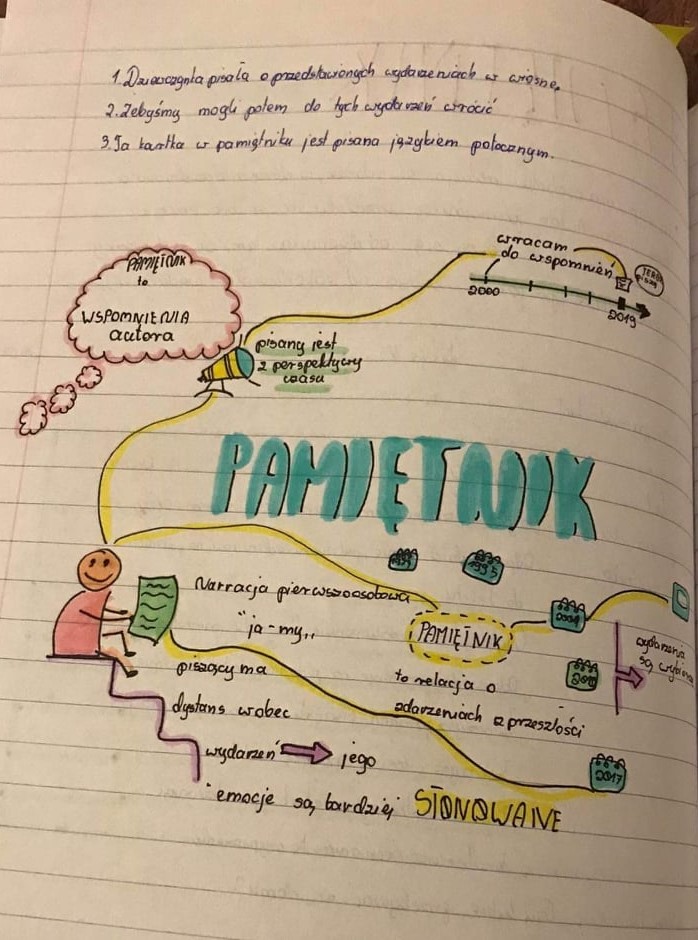 1. Dziewczynka pisała o przedstawionych wydarzeniach w wiosnę.
2. Żebyśmy mogli potem do tych wydarzeń wrócić
3. Ta kartka w pamiętniku jest pisana językiem potocznym.
wracam
do wspomnień
TERAZ
piszę
2000
2019
PAMIĘTNIK
to
WSPOMNIENIA
autora
pisany jest
z perspektywy
czasu
PAMIĘTNIK
1995
Narracja pierwszoosobowa
"ja-my„
PAMIĘTNIK
to relacja o
zdarzeniach z przeszłości
wydarzenia
są
piszący ma
dystans wobec
wydarzeń → jego
emocje są bardziej STONOWANE
2017